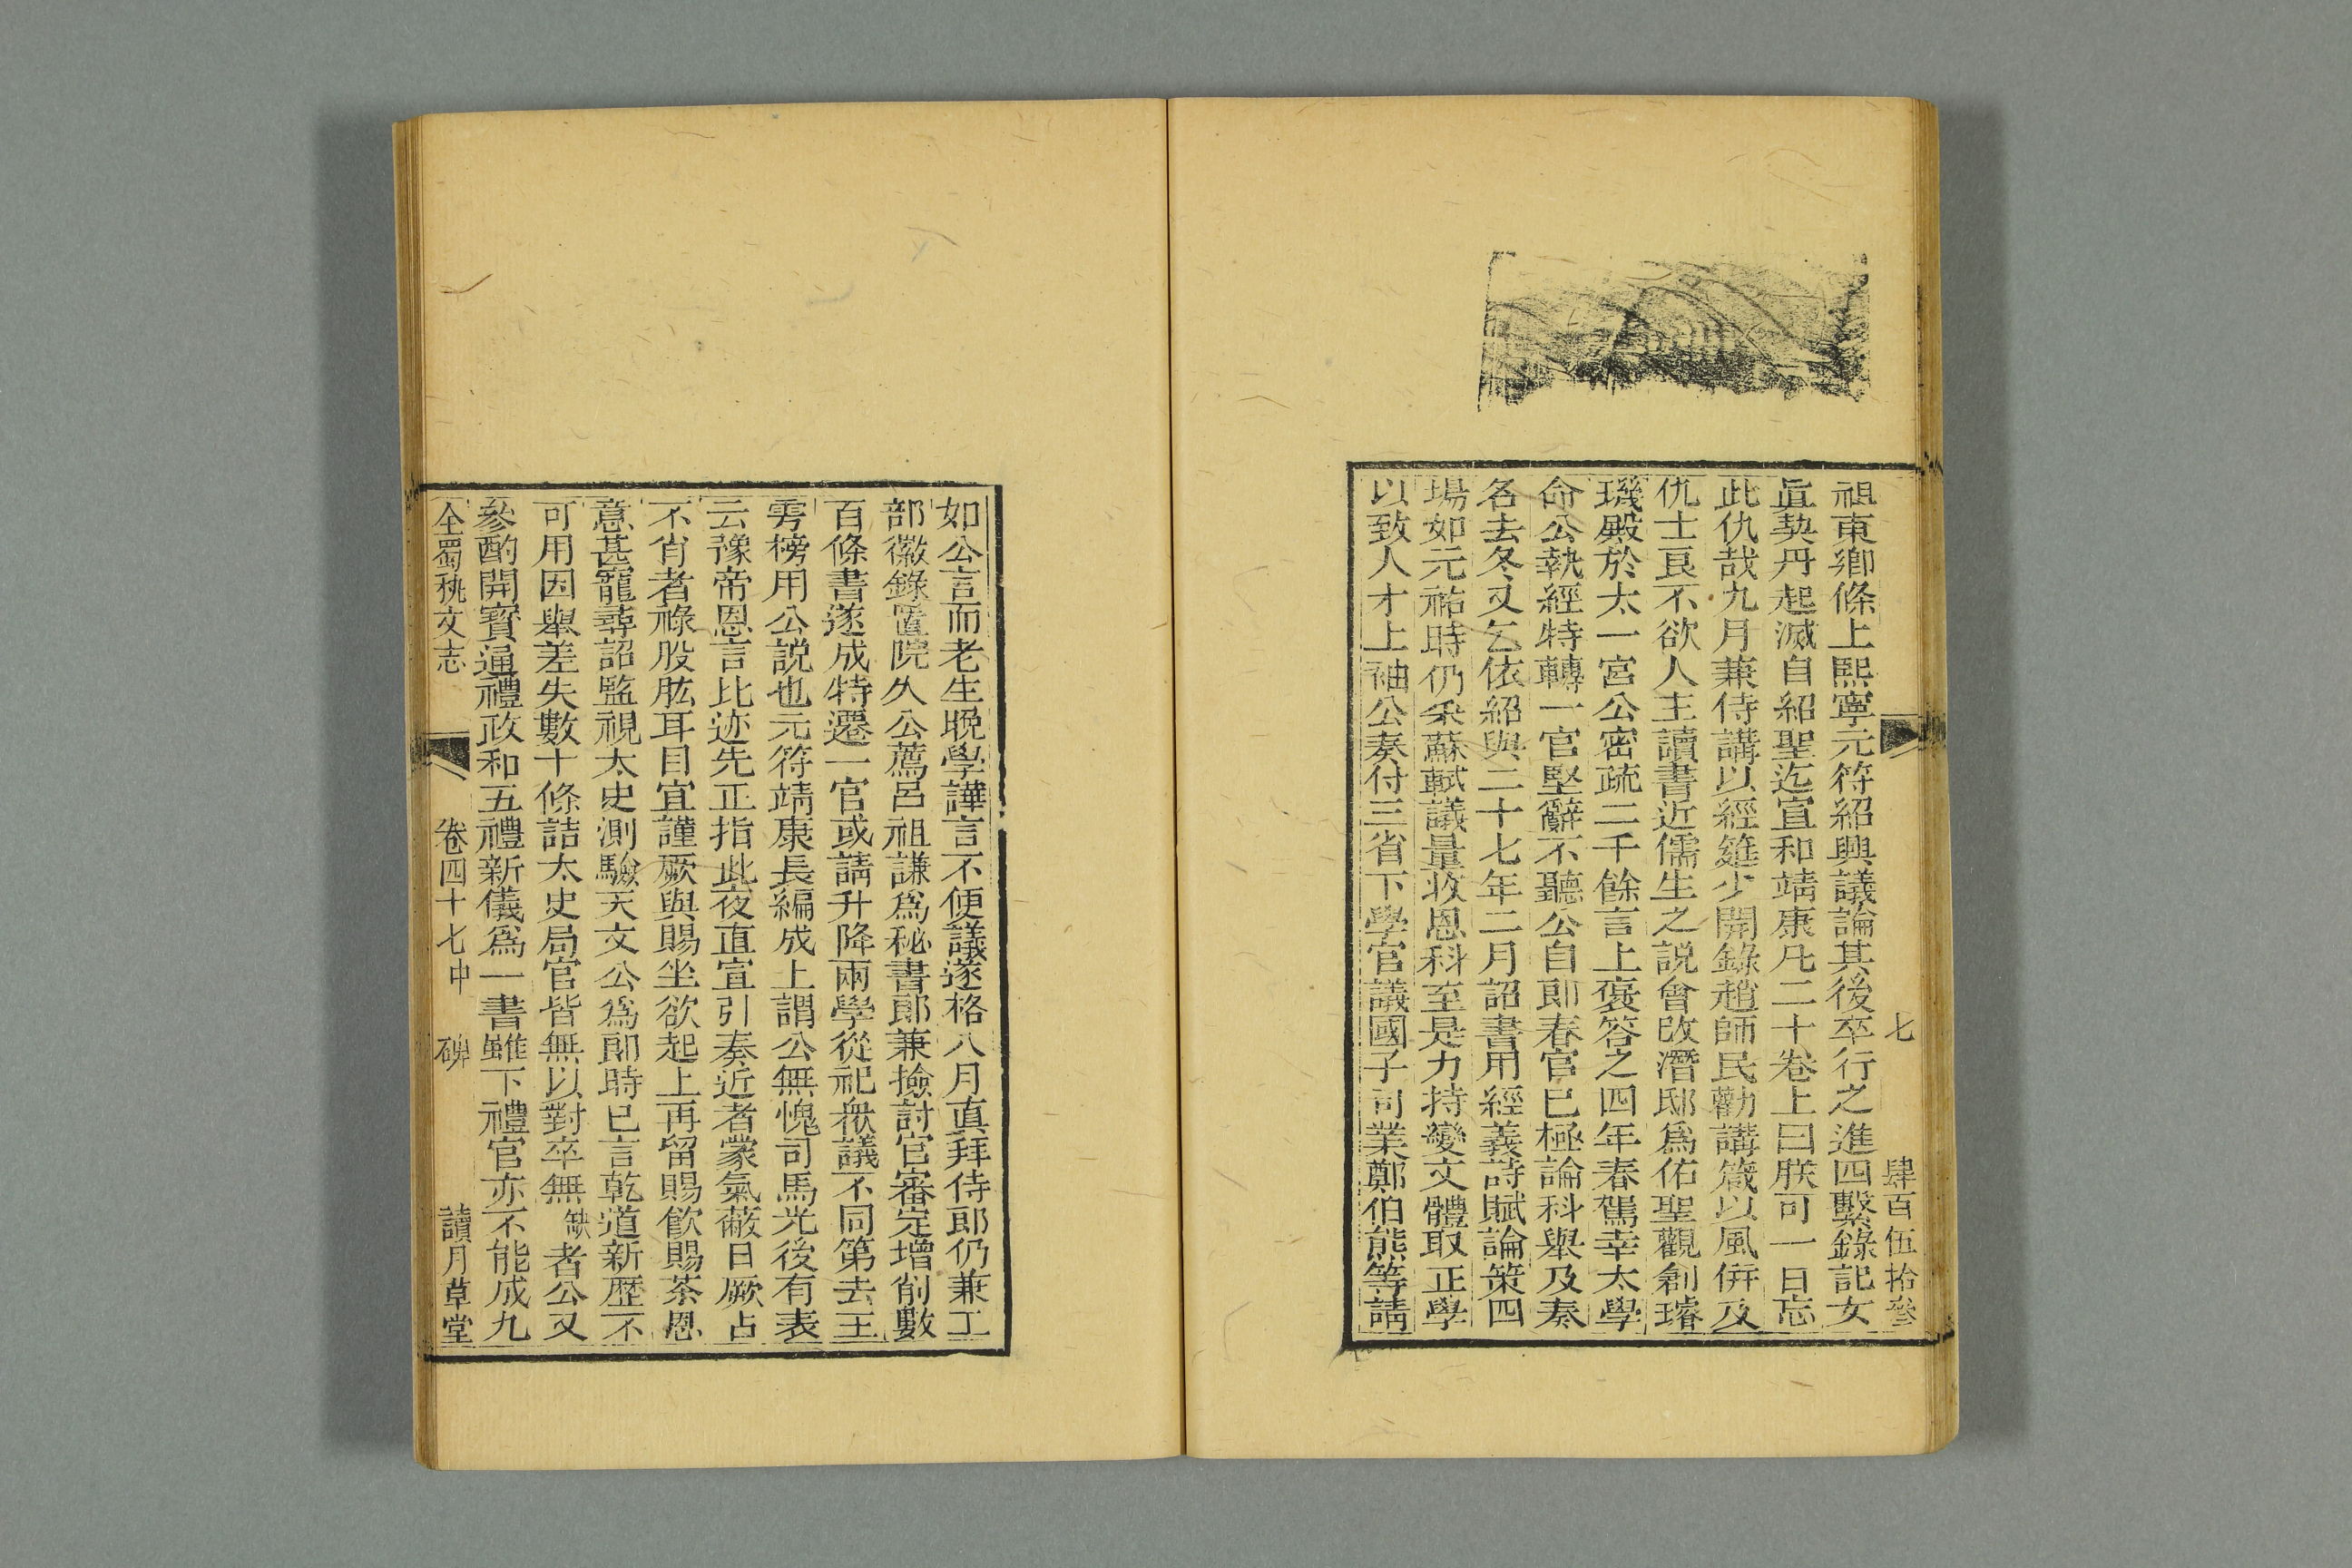 七 肆百伍拾叄
祖東鄉條上熙寧元符紹興議論其後卒行之進四繫錄記女
眞契丹起滅自紹聖迄宣和靖康凡二十卷上曰朕可一日忘
此仇哉九月兼侍講以經筵少開錄趙師民勸講箴以風倂及
仇士良不欲人主讀書近儒生之説會改潛邸爲佑聖觀創璿
璣殿於太一宮公密疏二千餘言上褒答之四年春駕幸太學
命公執經特轉一官堅辭不聽公自郎春官已極論科舉及奏
名去冬又乞依紹興二十七年二月詔書用經義詩賦論策四
場如元祐時仍采蘇軾議量收恩科至是力持變文體取正學
以致人才上袖公奏付三省下學官議國子司業鄭伯熊等請
如公言而老生晚學譁言不便議遂格八月眞拜侍郎仍兼工
部徽錄置院久公薦呂祖謙爲秘書郎兼檢討官審定增削數
百條書遂成特遷一官或請升降兩學從祀衆議不同第去王
雱榜用公説也元符靖康長編成上謂公無愧司馬光後有表
云豫帝恩言比迹先正指此夜直宣引奏近者蒙氣蔽日厥占
不肖者祿股肱耳目宜謹厥與賜坐欲起上再留賜飮賜茶恩
意甚寵尋詔監視太史測驗天文公爲郎時已言乾道新歷不
可用因舉差失數十條詰太史局官皆無以對卒無缺者公又
參酌開寳通禮政和五禮新儀爲一書雖下禮官亦不能成九
全蜀秇文志 卷四十七中 碑 讀月草堂